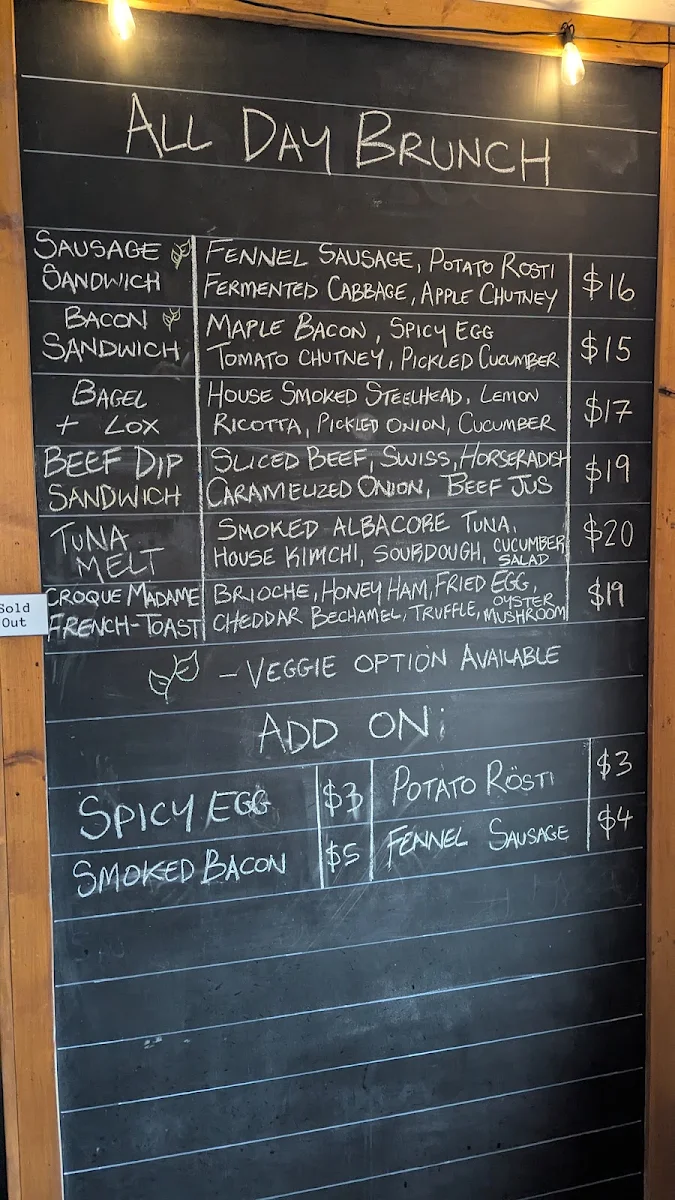 ALL DAY BRUNCH
SAUSAGE SANDWICH FENNEL SAUSAGE, POTATO ROSTI
FERMENTED CABBAGE, APPLE CHUTNEY $16
BACON SANDWICH MAPLE BACON, SPICY EGG
TOMATO CHUTNEY, PICKLED CUCUMBER $15
BAGEL + LOX HOUSE SMOKED STEELHEAD, LEMON
RICOTTA, PICKLED ONION, CUCUMBER $17
BEEF DIP SANDWICH SLICED BEEF, SWISS, HORSERADISH
CARAMELIZED ONION, BEEF JUS $19
TUNA MELT SMOKED ALBACORE TUNA,
HOUSE KIMCHI, SOURDOUGH, CUCUMBER SALAD $20
Sold Out
CROQUE MADAME FRENCH-TOAST BRIOCHE, HONEY HAM, FRIED EGG,
CHEDDAR BECHAMEL, TRUFFLE, OYSTER MUSHROOM $19
- VEGGIE OPTION AVAILABLE
ADD ON:
SPICY EGG $3 POTATO RÖSTI $3
SMOKED BACON $5 FENNEL SAUSAGE $4